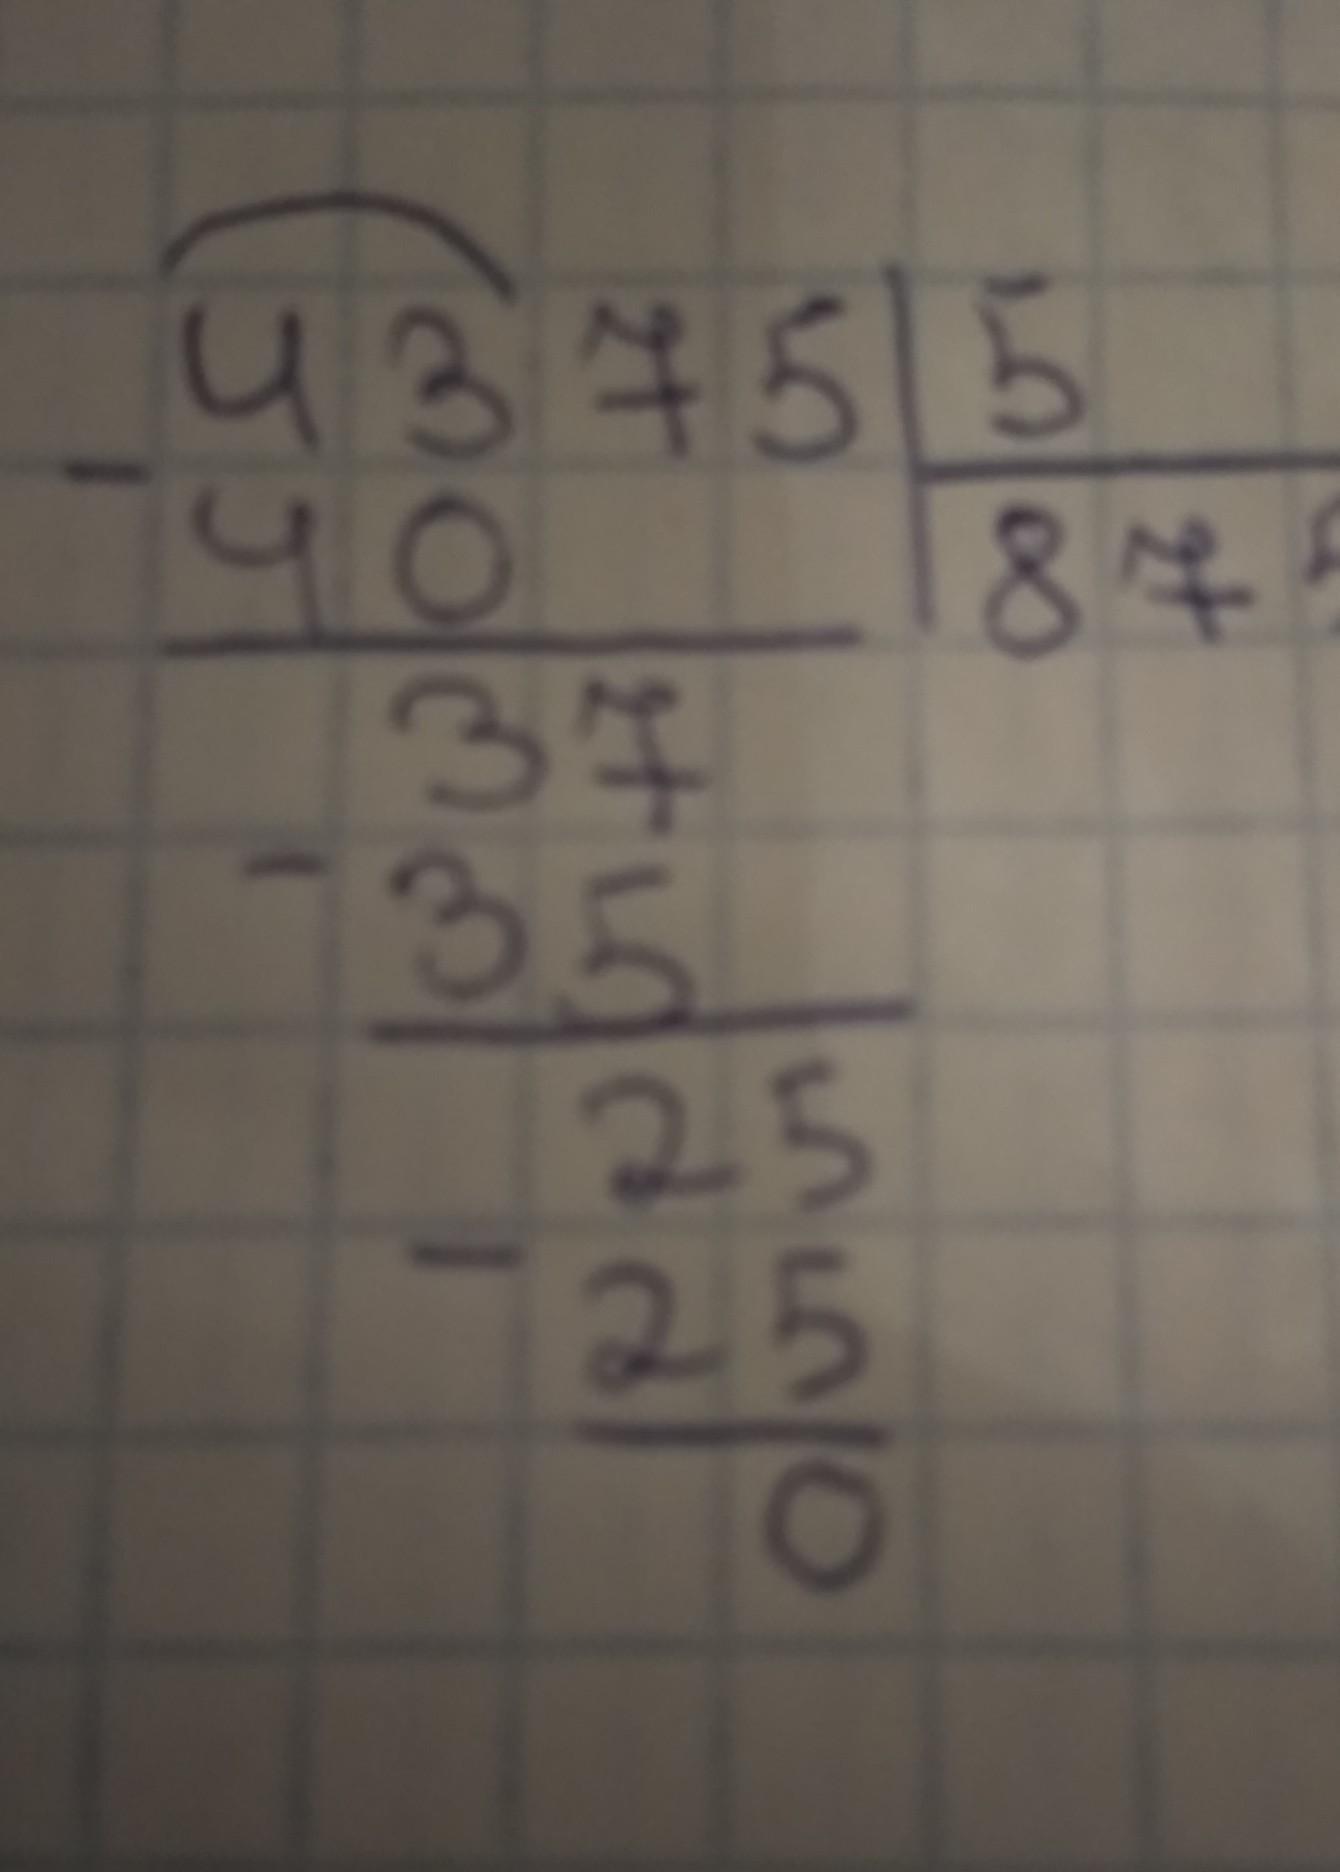 4375 | 5
- 40 | 875
37
- 35
25
- 25
0